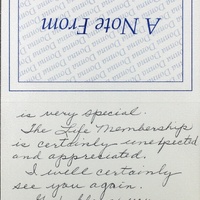 A Note From
Donna Donna Donna Donna
is very special.
The Life Membership
is certainly unexpected
and appreciated.
I will certainly
see you again.